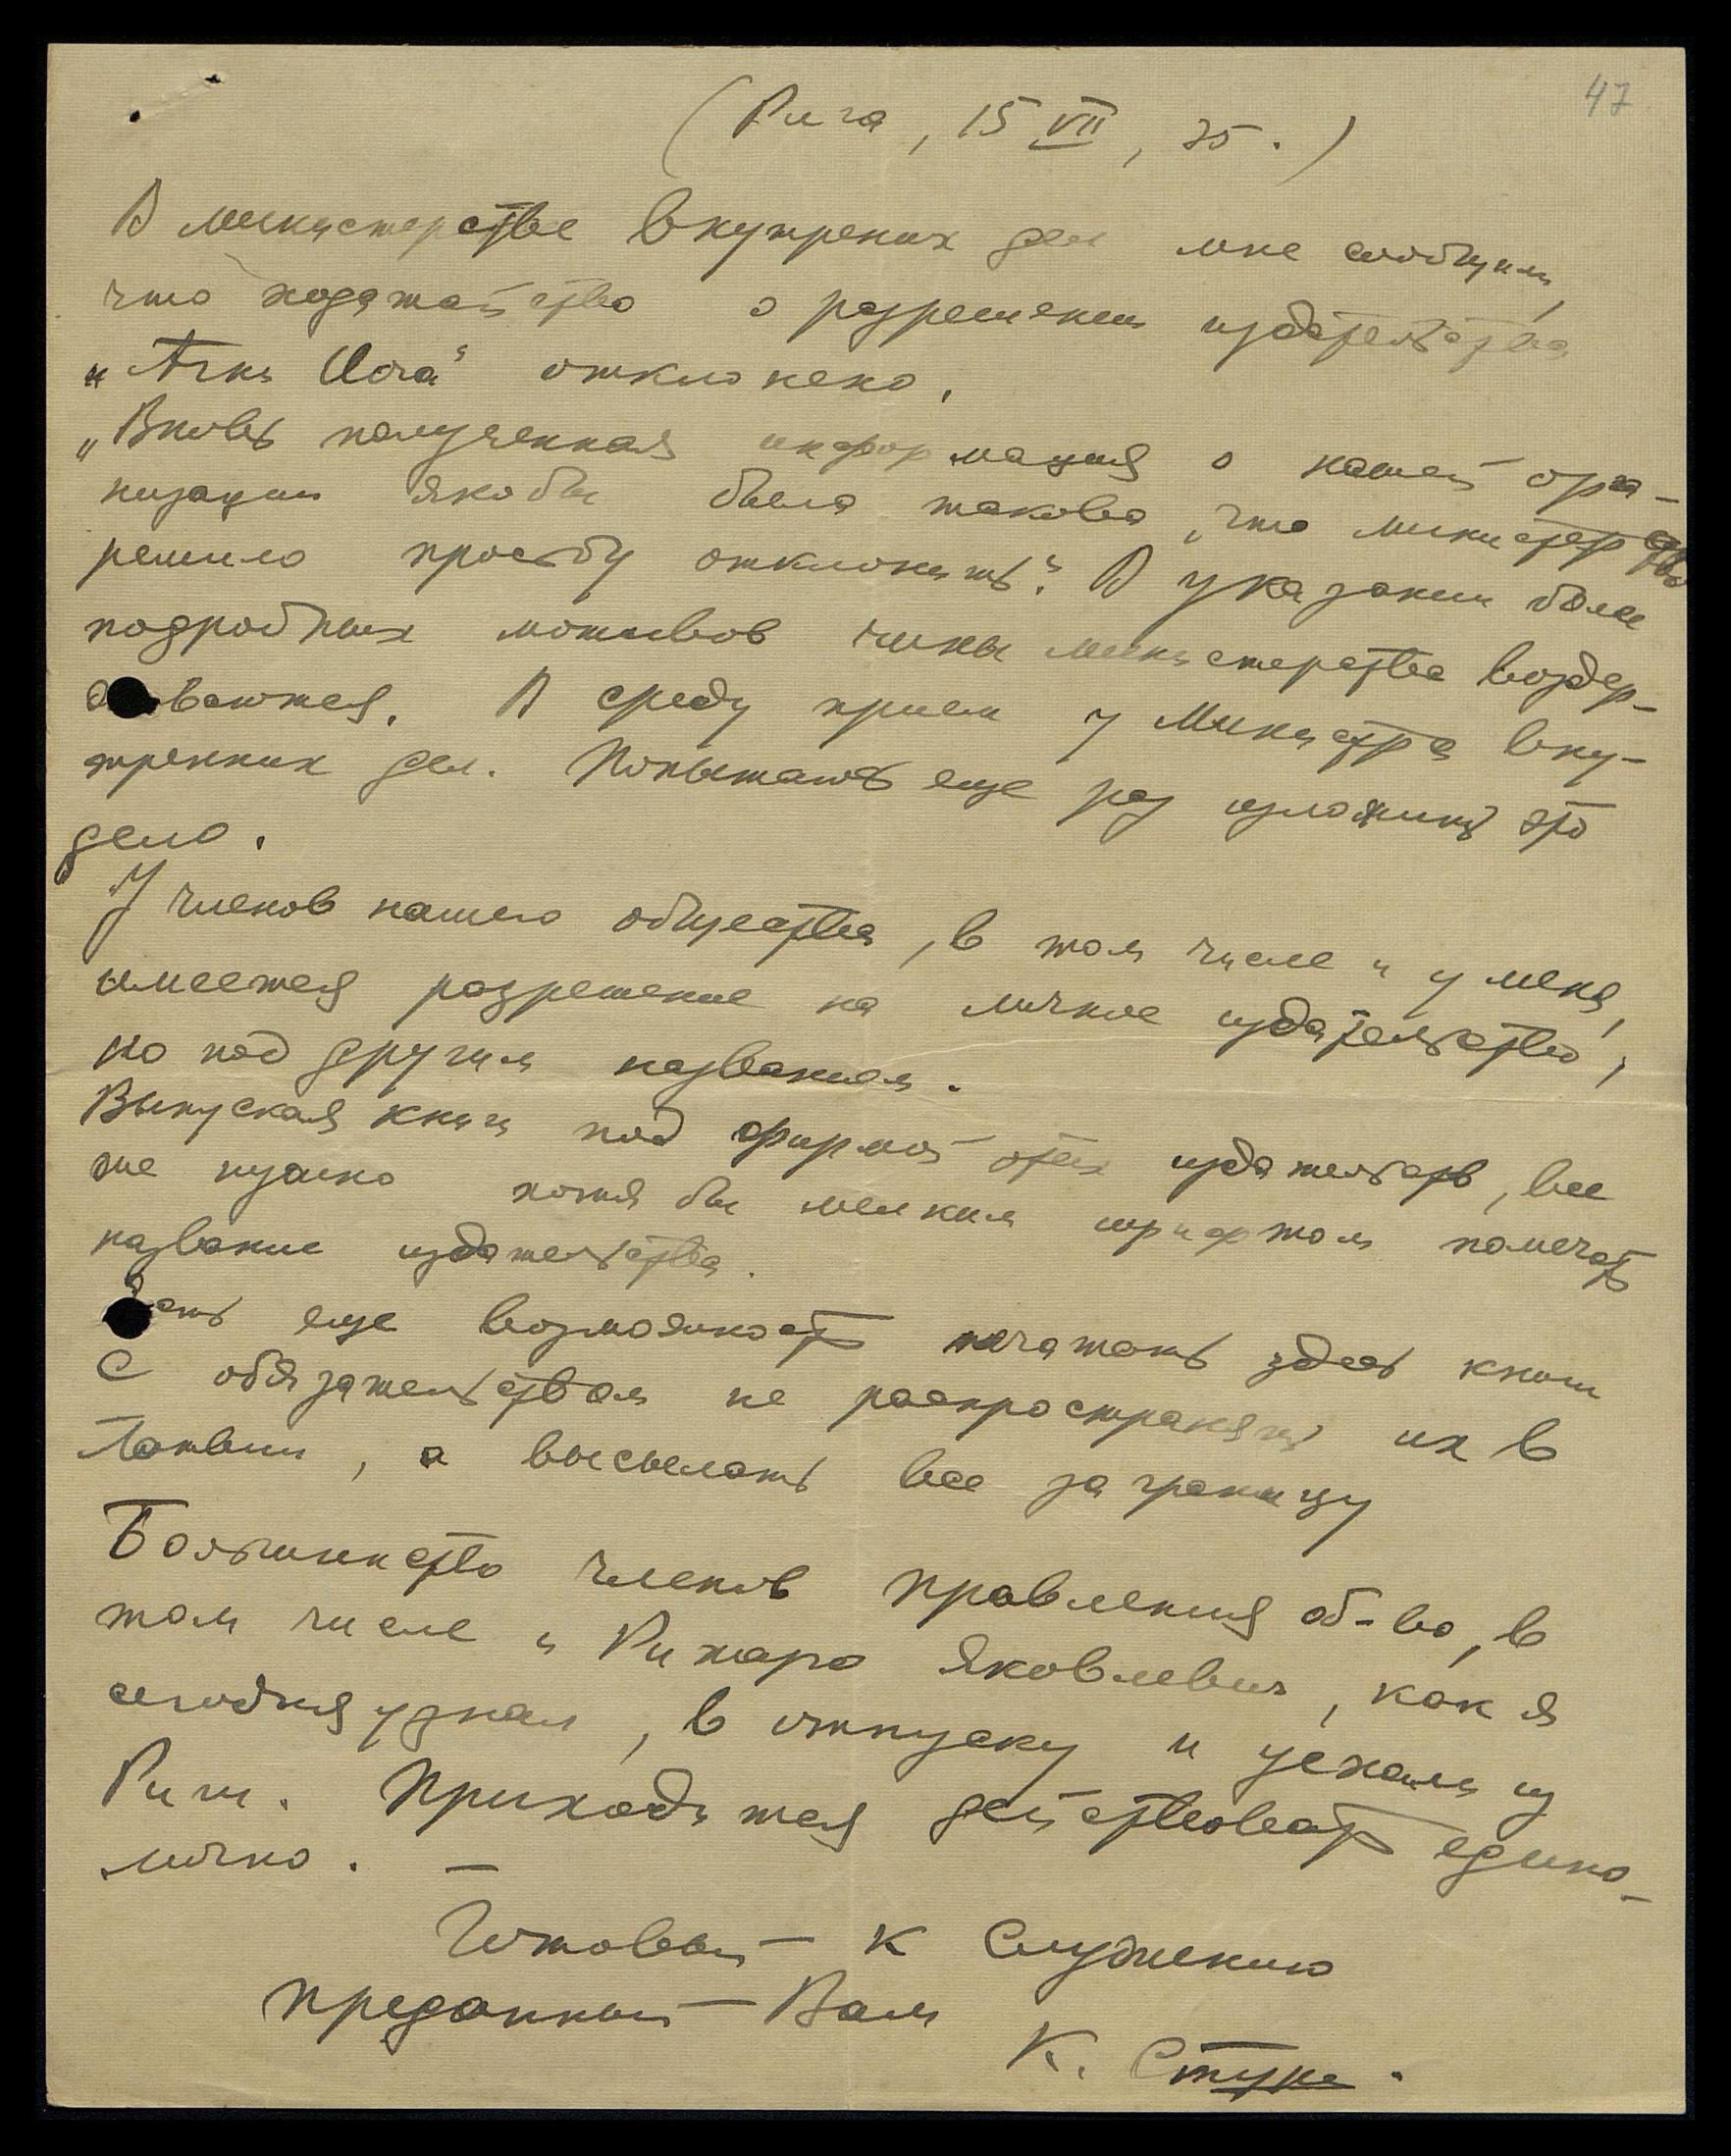 47
(Рига, 15 VII, 35.)
В министерстве внутрених дел мне сообщили,
что ходатайство о разрешении издательства
„Агни Йога“ отклонено.
„Вновь полученная информация о нашей орга-
низации якобы была такова, что министерство
решило просьбу отклонить“. В указании более
подробных мотивов чины министерства воздер-
ваются. В среду прием у Министра вну-
тренних дел. Попытаюсь еще раз изложить это
дело.
У членов нашего общества, в том числе и у меня,
имеется разрешение на личное издательство,
но под другим названием.
Выпуская книги под фирмой этих издательств, все
же нужно хотя бы мелким шрифтом помечать
название издательства.
Есть еще возможность печатать здесь книги
с обязательством не распространять их в
Латвии, а высылать все заграницу
Большинство членов правления об-ва, в
том числе и Рихард Яковлевич, как я
сегодня узнал, в отпуску и уехали из
Риги. Приходится действовать едино-
лично. —
Готовый к Служению
преданный Вам
К. Стуре.